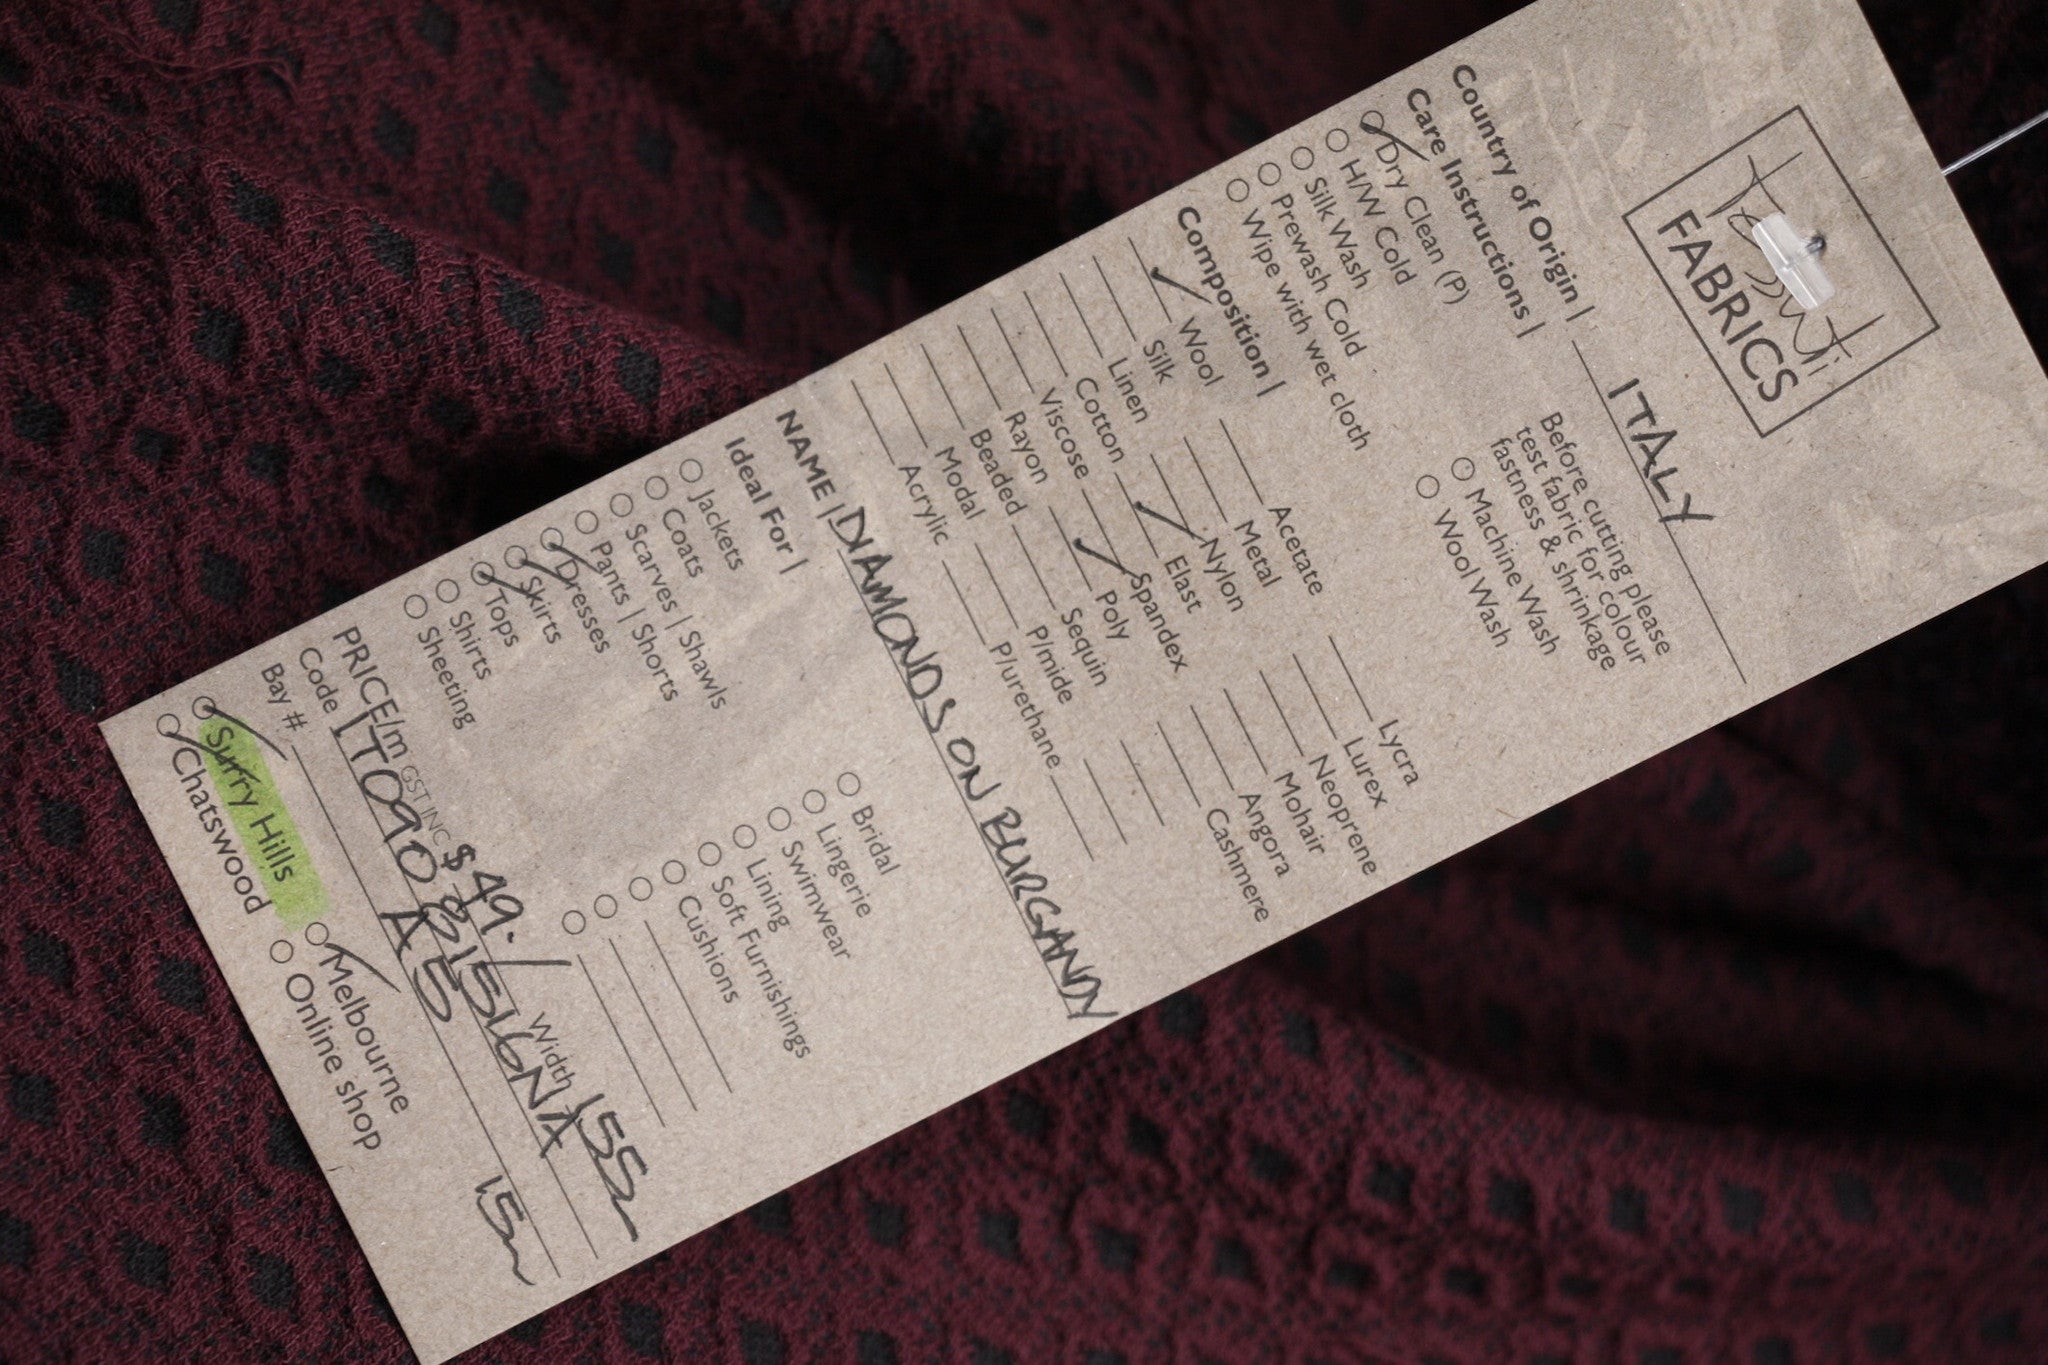 Tessuti
FABRICS
Country of Origin | ITALY
Care Instructions |
Before cutting please
test fabric for colour
fastness & shrinkage
Dry Clean (P)
H/W Cold
Silk Wash
Prewash Cold
Wipe with wet cloth
Machine Wash
Wool Wash
Composition |
Wool Acetate Lycra
Silk Metal Lurex
Linen Nylon Neoprene
Cotton Elast Mohair
Viscose Spandex Angora
Rayon Poly Cashmere
Beaded Sequin
Modal P/mide
Acrylic P/urethane
NAME | DIAMONDS ON BURGANDY
Ideal For |
Jackets Bridal
Coats Lingerie
Scarves | Shawls Swimwear
Pants | Shorts Lining
Dresses Soft Furnishings
Skirts Cushions
Tops
Shirts
Sheeting
PRICE/m GST INC $49. Width 155
Code ITO90 81516NA
Bay # A5 1.5m
Surry Hills Melbourne
Chatswood Online shop